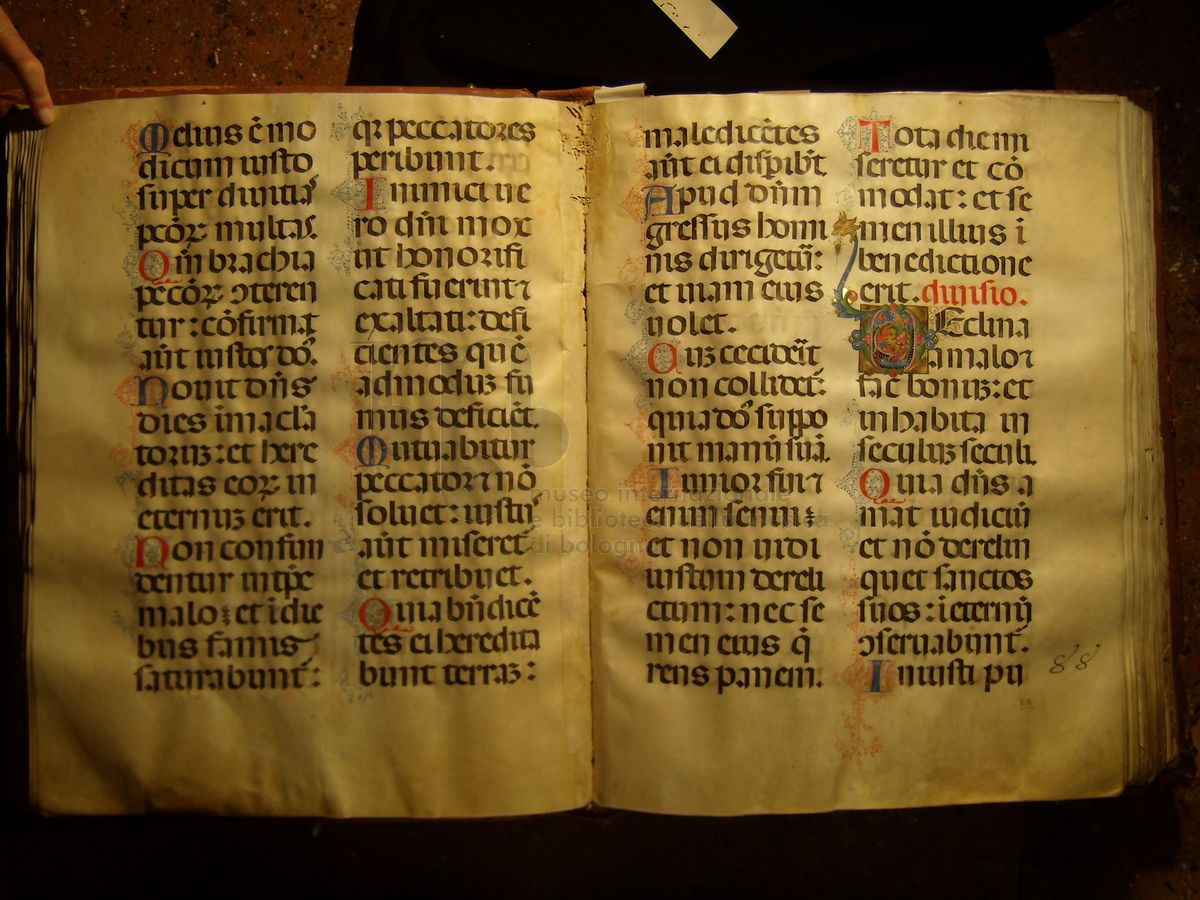 Melius ē mo
dicum iusto
super diuitias
pctōꝝ multas.
Qm̄ brachia
pctōꝝ ɔteren
tur: ꝯfirmat
aūt iustos dōs.
Nouit dn̄s
dies imacl̄a
toruʒ: et here
ditas eoꝝ in
eternuʒ erit.
Non confun
dentur in tp̄e
malo: et ī die
bus famis
saturabunt̄:
qꝛ peccatores
peribunt.
Inimici ue
ro dn̄i mox
ut honorifi
cati fuerint ⁊
exaltati: defi
cientes quē
admoduʒ fu
mus deficiēt.
Mutuabitur
peccator ⁊ nō
soluet: iustus
aūt miseret̄
et retribuet.
Quia bn̄dicē
tes ei heredita
bunt terraʒ:
maledicētes
aūt ei disꝑibūt
Apud dn̄m
gressus homi
nis dirigetūr:
et uiam eius
uolet.
Cuʒ ceciderīt
non collidet̄:
quia dōs suppo
nit manū suā.
Iunior fui ⁊
enim senui:
et non uidi
iustum dereli
ctum: nec se
men eius q̄
rens panem.
Tota die mi
seretur et cō
modat: et se
men illius ī
benedictione
erit. diuisio.
DEclina
a malo ⁊
fac bonuʒ: et
inhabita in
seculuʒ seculi.
Quia dn̄s a
mat iudiciū
et nō derelin
quet sanctos
suos: ī eternū
ɔseruabunt̄.
Iniusti pu
88
museo internazionale
e biblioteca della musica
di bologna